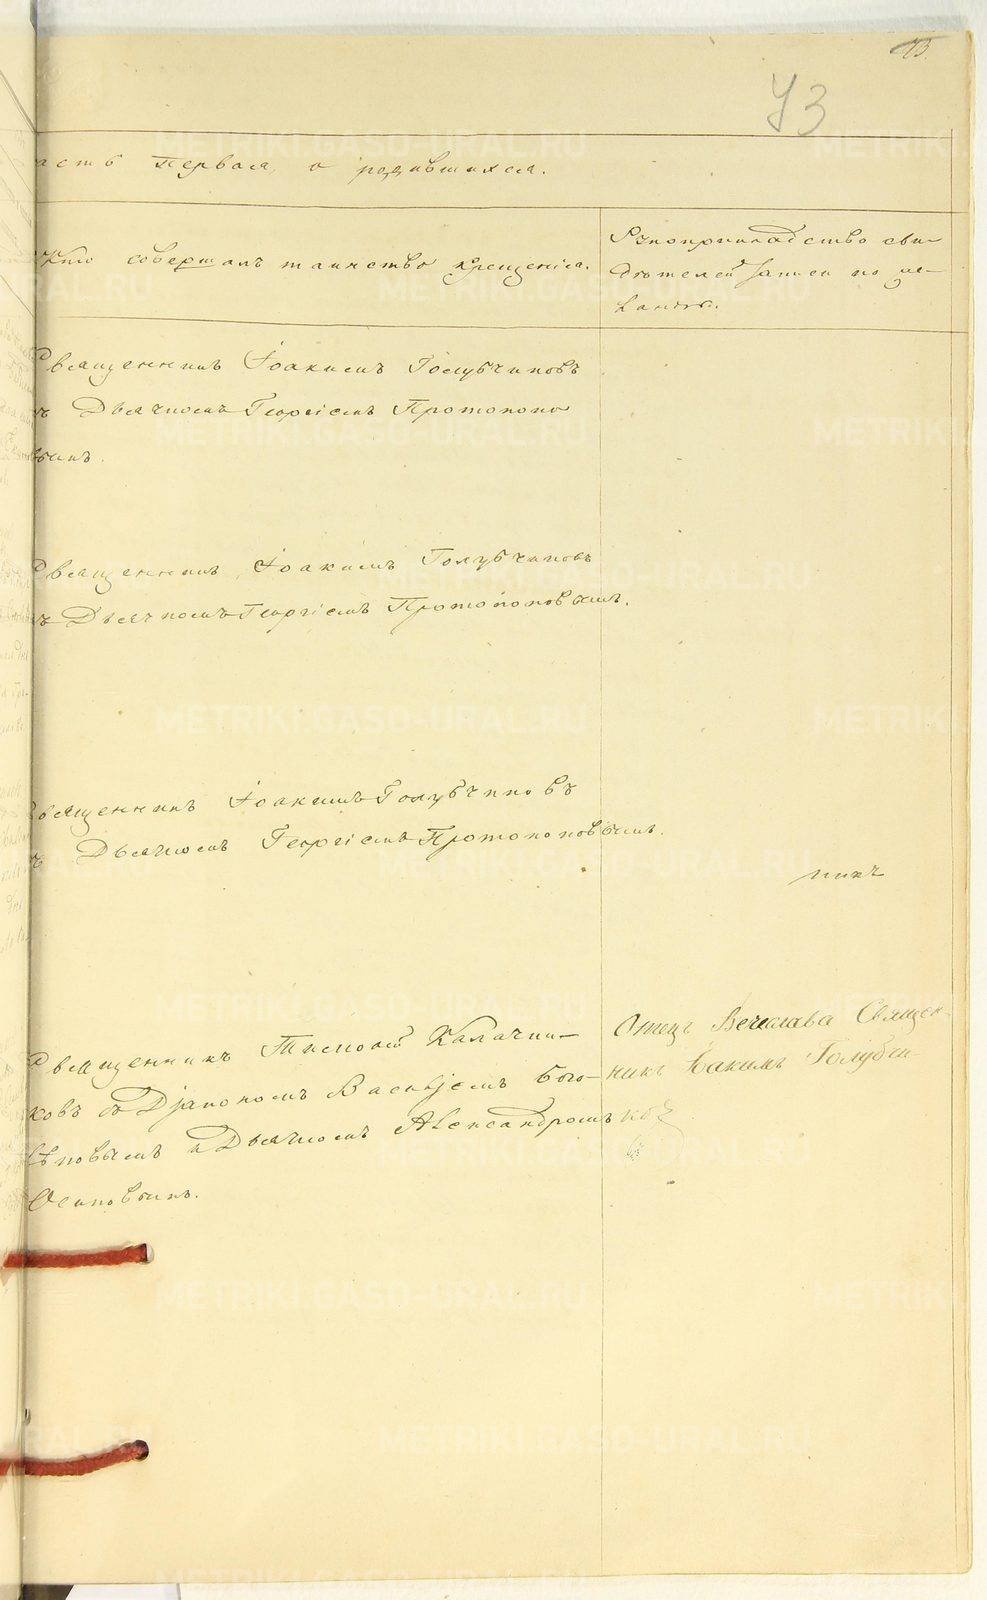 73
73
асть первая, о родившихся.
Кто совершалъ таинство крещенія.
Рукоприкладство сви-
дѣтелей записи по же-
ланію.
Священникъ Іоакимъ Голубчиковъ
съ Дьячкомъ Георгіемъ Протопопо
вымъ.
Священникъ Іоакимъ Голубчиковъ
съ Дьячкомъ Георгіемъ Протопоповымъ.
Священникъ Іоакимъ Голубчиковъ
съ Дьячкомъ Георгіемъ Протопоповымъ.
никъ
Священникъ Тимофей Калачни-
ковъ съ Діакономъ Василіемъ Бого-
словымъ и Дьячкомъ Александромъ
Осиповымъ.
Отецъ Вечеслава Священ-
никъ Іакимъ Голубчи-
ковъ
METRIKI.GASO-URAL.RU